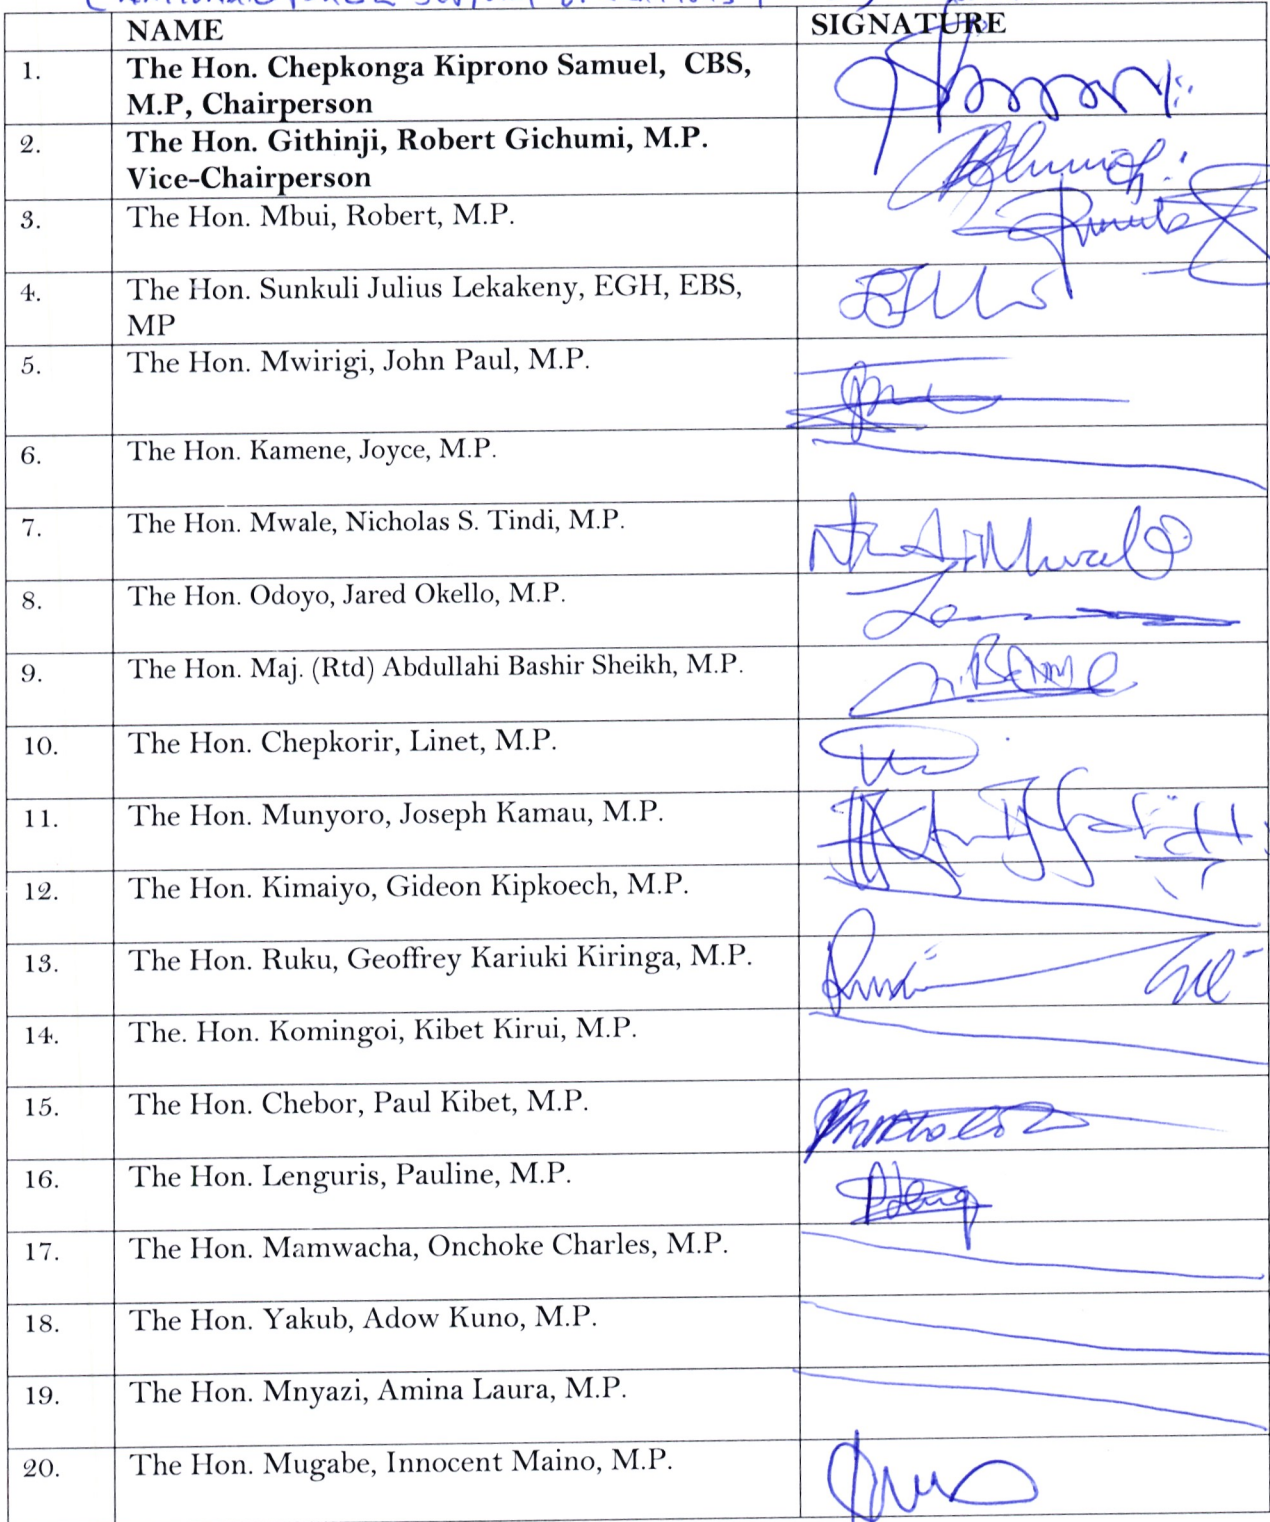 NAME SIGNATURE
1. The Hon. Chepkonga Kiprono Samuel, CBS,
M.P, Chairperson
2. The Hon. Githinji, Robert Gichumi, M.P.
Vice-Chairperson
3. The Hon. Mbui, Robert, M.P.
4. The Hon. Sunkuli Julius Lekakeny, EGH, EBS,
MP
5. The Hon. Mwirigi, John Paul, M.P.
6. The Hon. Kamene, Joyce, M.P.
7. The Hon. Mwale, Nicholas S. Tindi, M.P.
8. The Hon. Odoyo, Jared Okello, M.P.
9. The Hon. Maj. (Rtd) Abdullahi Bashir Sheikh, M.P.
10. The Hon. Chepkorir, Linet, M.P.
11. The Hon. Munyoro, Joseph Kamau, M.P.
12. The Hon. Kimaiyo, Gideon Kipkoech, M.P.
13. The Hon. Ruku, Geoffrey Kariuki Kiringa, M.P.
14. The. Hon. Komingoi, Kibet Kirui, M.P.
15. The Hon. Chebor, Paul Kibet, M.P.
16. The Hon. Lenguris, Pauline, M.P.
17. The Hon. Mamwacha, Onchoke Charles, M.P.
18. The Hon. Yakub, Adow Kuno, M.P.
19. The Hon. Mnyazi, Amina Laura, M.P.
20. The Hon. Mugabe, Innocent Maino, M.P.